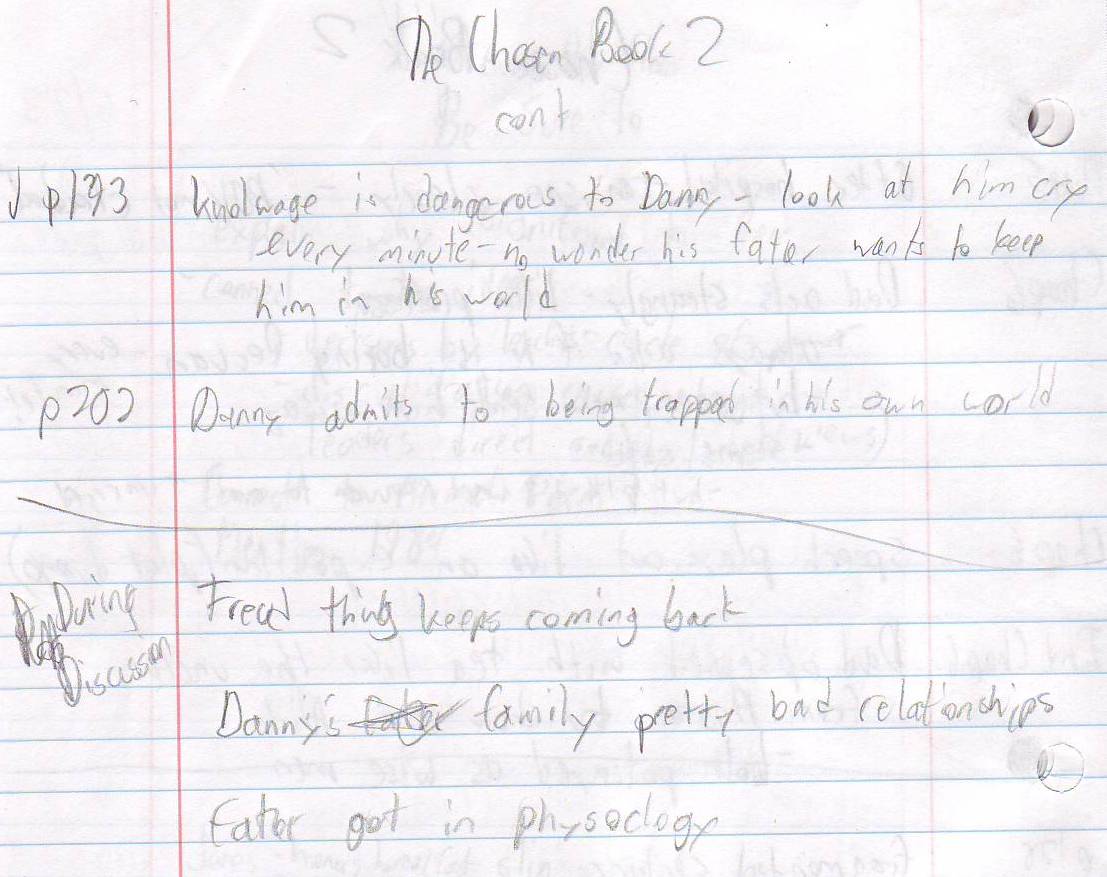 The Chosen Book 2
cont
p193 knolwage is dangerous to Danny - look at him cry
every minute - no wonder his fater wants to keep
him in his world
p202 Danny admits to being trapped in his own world
During Freud thing keeps coming back
Discussion
Danny's family pretty bad relationships
Father got in physoclogy